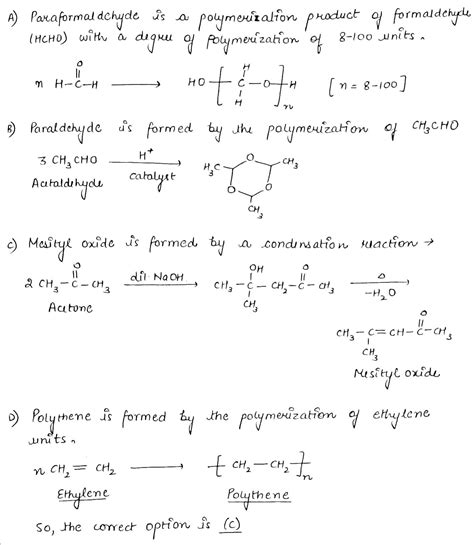 A) Paraformaldehyde is a polymerization product of formaldehyde
(HCHO) with a degree of polymerization of 8-100 units.
O
n H-C-H ⟶ HO-[-C-O-]-H [n = 8-100]
H
H
n
B) Paraldehyde is formed by the polymerization of CH3CHO
3 CH3CHO H+ ⟶ H3C O CH3
Acetaldehyde catalyst O O
CH3
C) Mesityl oxide is formed by a condensation reaction →
O OH O
2 CH3-C-CH3 dil NaOH ⟶ CH3-C-CH2-C-CH3 Δ ⟶ -H2O
Acetone CH3
O
CH3-C=CH-C-CH3
CH3
Mesityl oxide
D) Polythene is formed by the polymerization of ethylene
units.
n CH2=CH2 ⟶ [-CH2-CH2-]n
Ethylene Polythene
So, the correct option is (C)